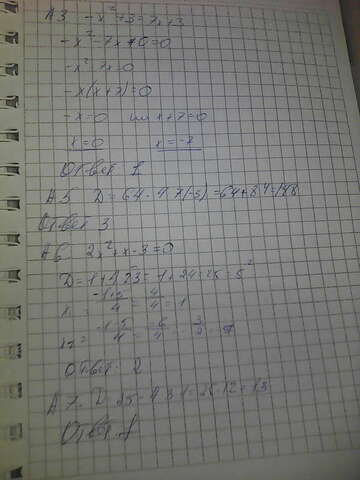 А3 -x²+3=7x+3
-x²-7x+0=0
-x²-7x=0
-x(x+7)=0
-x=0 или x+7=0
x=0 x=-7
Ответ 1
А5 D=64-4·7·(-3)=64+84=148
Ответ 3
А6 2x²+x-3=0
D=1+4·2·3=1+24=25=5²
x₁= -1+5/4 = 4/4 = 1
x₂= -1-5/4 = 6/4 = 3/2
Ответ: 2
А7. D=25-4·3·1=25-12=13
Ответ